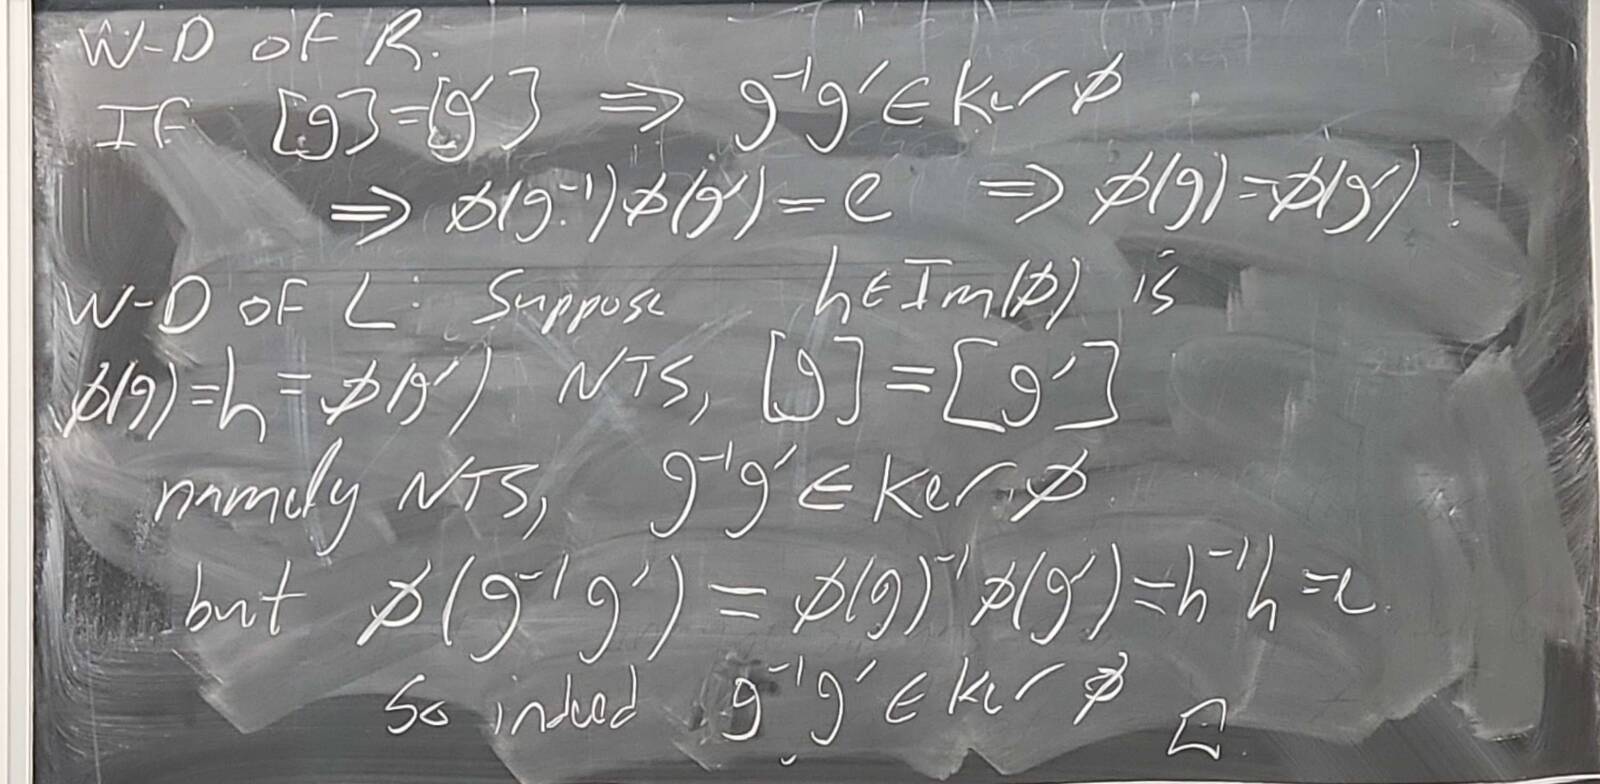 W-D OF R.
IF [g]=[g'] ⇒ g⁻¹g' ∈ Ker ϕ
⇒ ϕ(g⁻¹)ϕ(g') = e ⇒ ϕ(g)=ϕ(g').
W-D OF L: Suppose h ∈ Im(ϕ) is
ϕ(g)=h=ϕ(g') NTS, [g]=[g']
namely NTS, g⁻¹g' ∈ Ker ϕ.
but ϕ(g⁻¹g') = ϕ(g)⁻¹ϕ(g')=h⁻¹h=e.
So indeed g⁻¹g' ∈ Ker ϕ □.